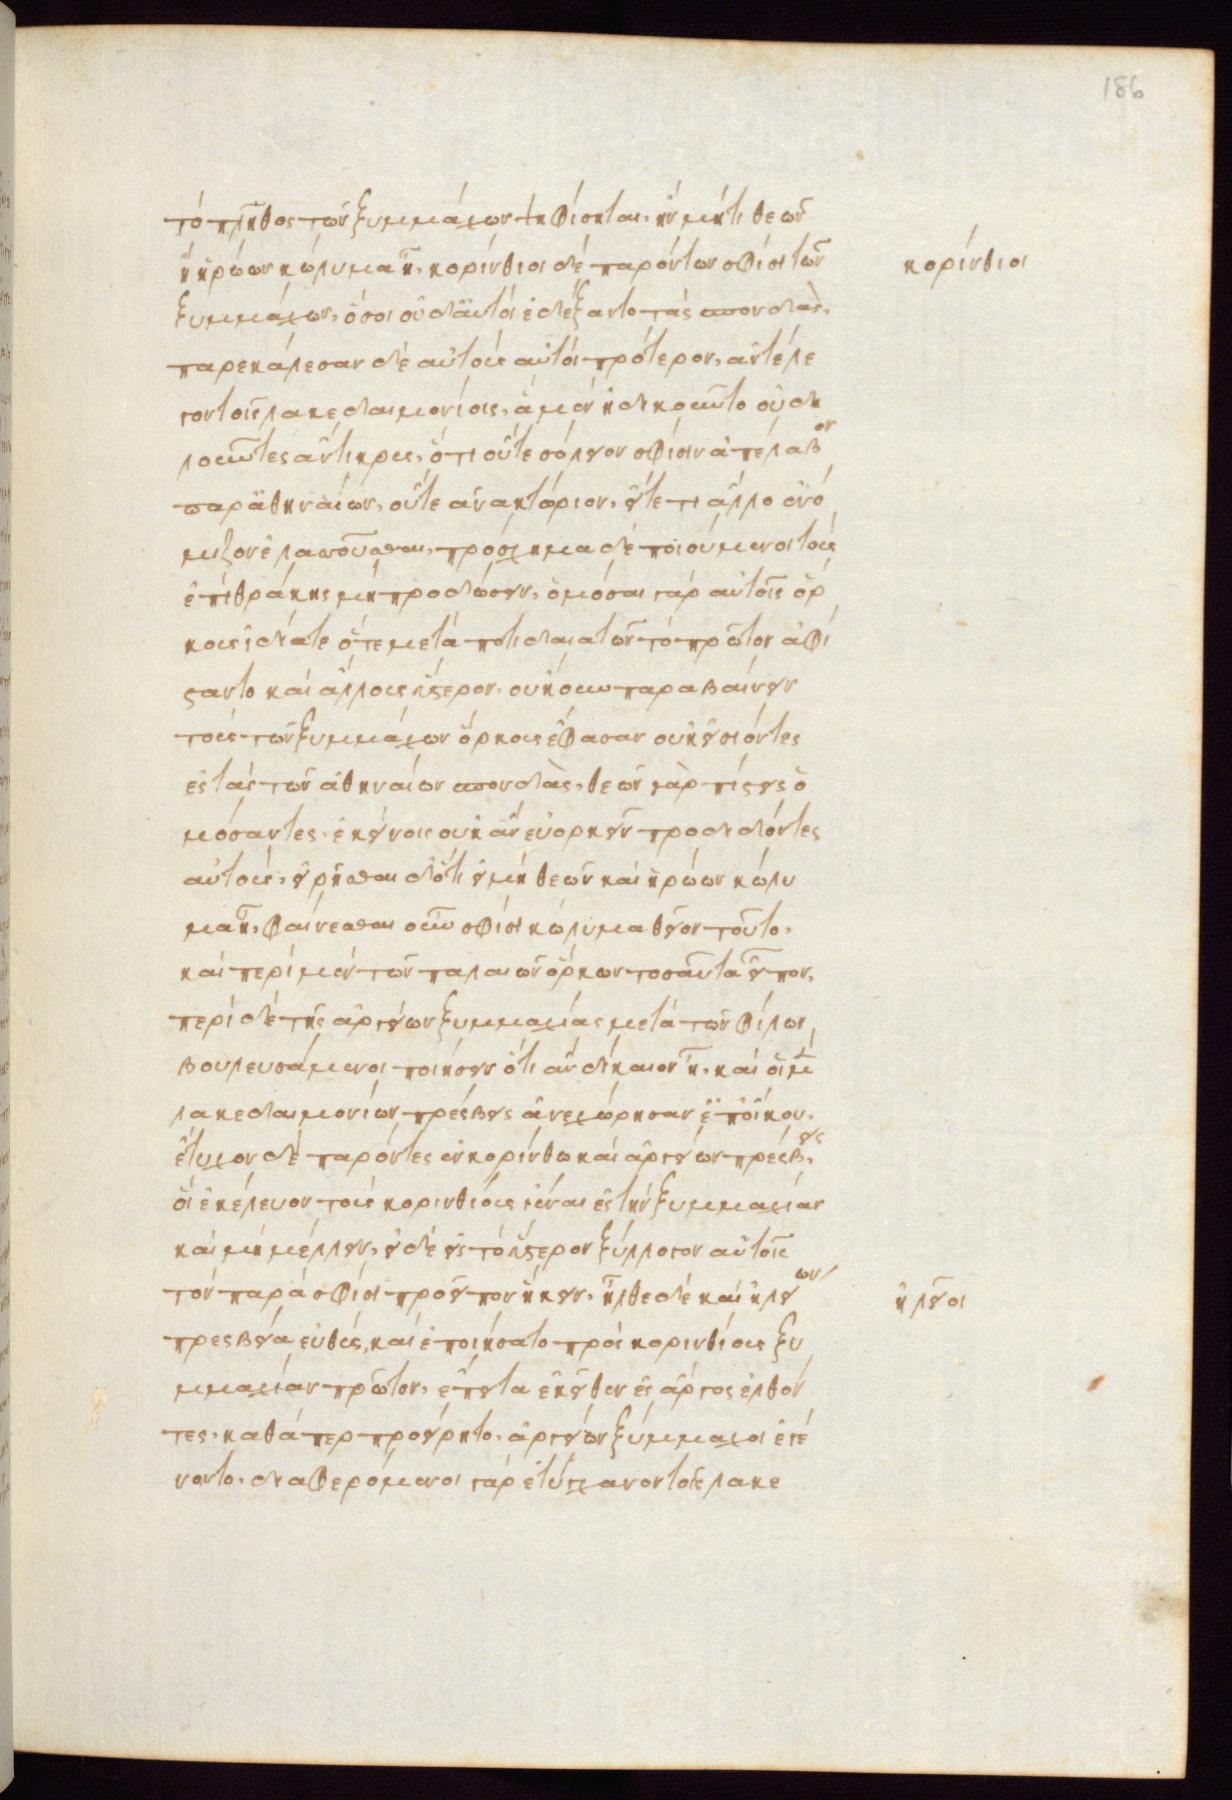 186
τὸ πλῆθος τῶν ξυμμάχων ψηφίσηται, ἢν μήτι θεῶν
ἢ ἡρώων κώλυμα ἦ. κορίνθιοι δὲ παρόντων σφίσι τῶν
κορίνθιοι
ξυμμάχων, ὅσοι οὐδ' αὐτοὶ ἐδέξαντο τὰς σπονδὰς,
παρεκάλεσαν δὲ αὐτοὺς αὐτοὶ πρότερον, ἀντέλε
γον τοῖς λακεδαιμονίοις, ἃ μὲν ἠδικοῦντο οὐ δη
λοῦντες ἄντικρυς, ὅτι οὔτε σόλειον σφίσιν ἀπέλαβον
παρ' ἀθηναίων, οὔτε ἀνακτόριον, εἴτε τι ἄλλο ἐνό
μιζον ἐλασσοῦσθαι, πρόσχημα δὲ ποιούμενοι τοὺς
ἐπὶ θράκης μὴ προδώσειν, ὀμόσαι γὰρ αὐτοῖς ὅρ
κους ἰδίᾳ τε ὅτε μετὰ ποτιδαιατῶν τὸ πρῶτον ἀφί
σαντο καὶ ἄλλους ὕστερον. οὐκ οὖν παραβαίνειν
τοὺς τῶν ξυμμάχων ὅρκους ἔφασαν οὐκ εἰσιόντες
ἐς τὰς τῶν ἀθηναίων σπονδὰς, θεῶν γὰρ πίστεις ὀ
μόσαντες ἐκείνοις οὐκ ἂν εὐορκεῖν προδιδόντες
αὐτοὺς, εἰρῆσθαι δ' ὅτι εἰ μὴ θεῶν καὶ ἡρώων κώλυ
μα ἦ, φαίνεσθαι οὖν σφίσι κώλυμα θεῖον τοῦτο.
καὶ περὶ μὲν τῶν παλαιῶν ὅρκων τοσαῦτα εἶπον,
περὶ δὲ τῆς ἀργείων ξυμμαχίας μετὰ τῶν φίλων
βουλευσάμενοι ποιήσειν ὅτι ἂν δίκαιον ἦ. καὶ οἱ μὲν
λακεδαιμονίων πρέσβεις ἀνεχώρησαν ἐπ' οἴκου.
ἔτυχον δὲ παρόντες ἐν κορίνθω καὶ ἀργείων πρέσβεις,
οἳ ἐκέλευον τοὺς κορινθίους ἰέναι ἐς τὴν ξυμμαχίαν
καὶ μὴ μέλλειν, οἱ δὲ εἰς τὸ ὕστερον ξύλλογον αὐτοῖς
τὸν παρὰ σφίσι προεῖπον ἥκειν. ἦλθε δὲ καὶ ἠλείων
ἠλεῖοι
πρεσβεία εὐθὺς, καὶ ἐποιήσατο πρὸς κορινθίους ξυ
μμαχίαν πρῶτον, ἔπειτα ἐκεῖθεν ἐς ἄργος ἐλθόν
τες, καθάπερ προείρητο, ἀργείων ξύμμαχοι ἐγέ
νοντο, διαφερόμενοι γὰρ ἐτύγχανον τοῖς λακε